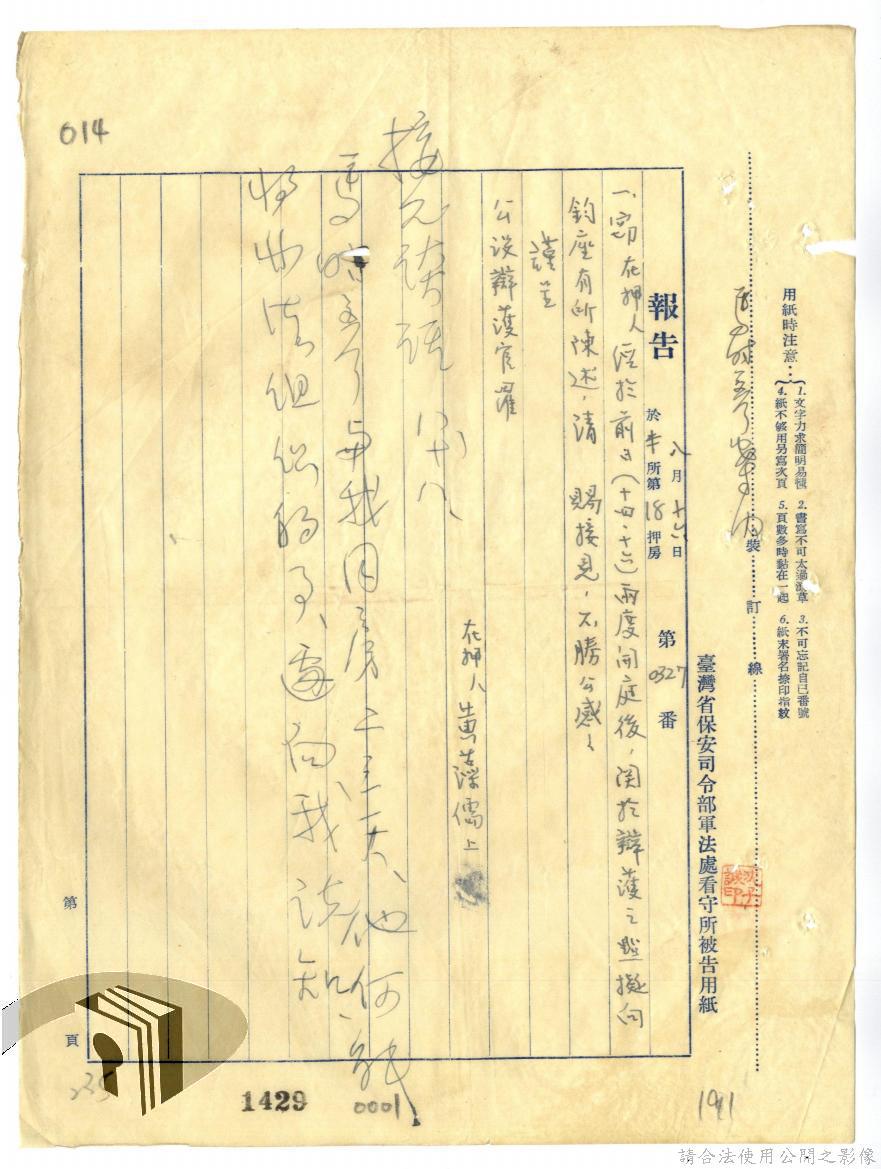 014
用紙時注意：
1.文字力求簡明易懂　2.書寫不可太過潦草　3.不可忘記自己番號
4.紙不够用另寫次頁　5.頁數多時黏在一起　6.紙末署名捺印指紋
裝　訂　線
臺灣省保安司令部軍法處看守所被告用紙
報告　八月十六日　於　所第18押房　第0327番
一、竊在押人經於前日（十四、十六）兩度開庭後，関於辯護之點擬向
鈞座有所陳述，請　賜接見，不勝公感。
謹呈
公設辯護官羅
在押人黃藻儒上
接見談話　八、十八、
與我同房二三天、他何
組織的了、還向我談
第　頁
235
1429
0001
1911
請合法使用公開之影像